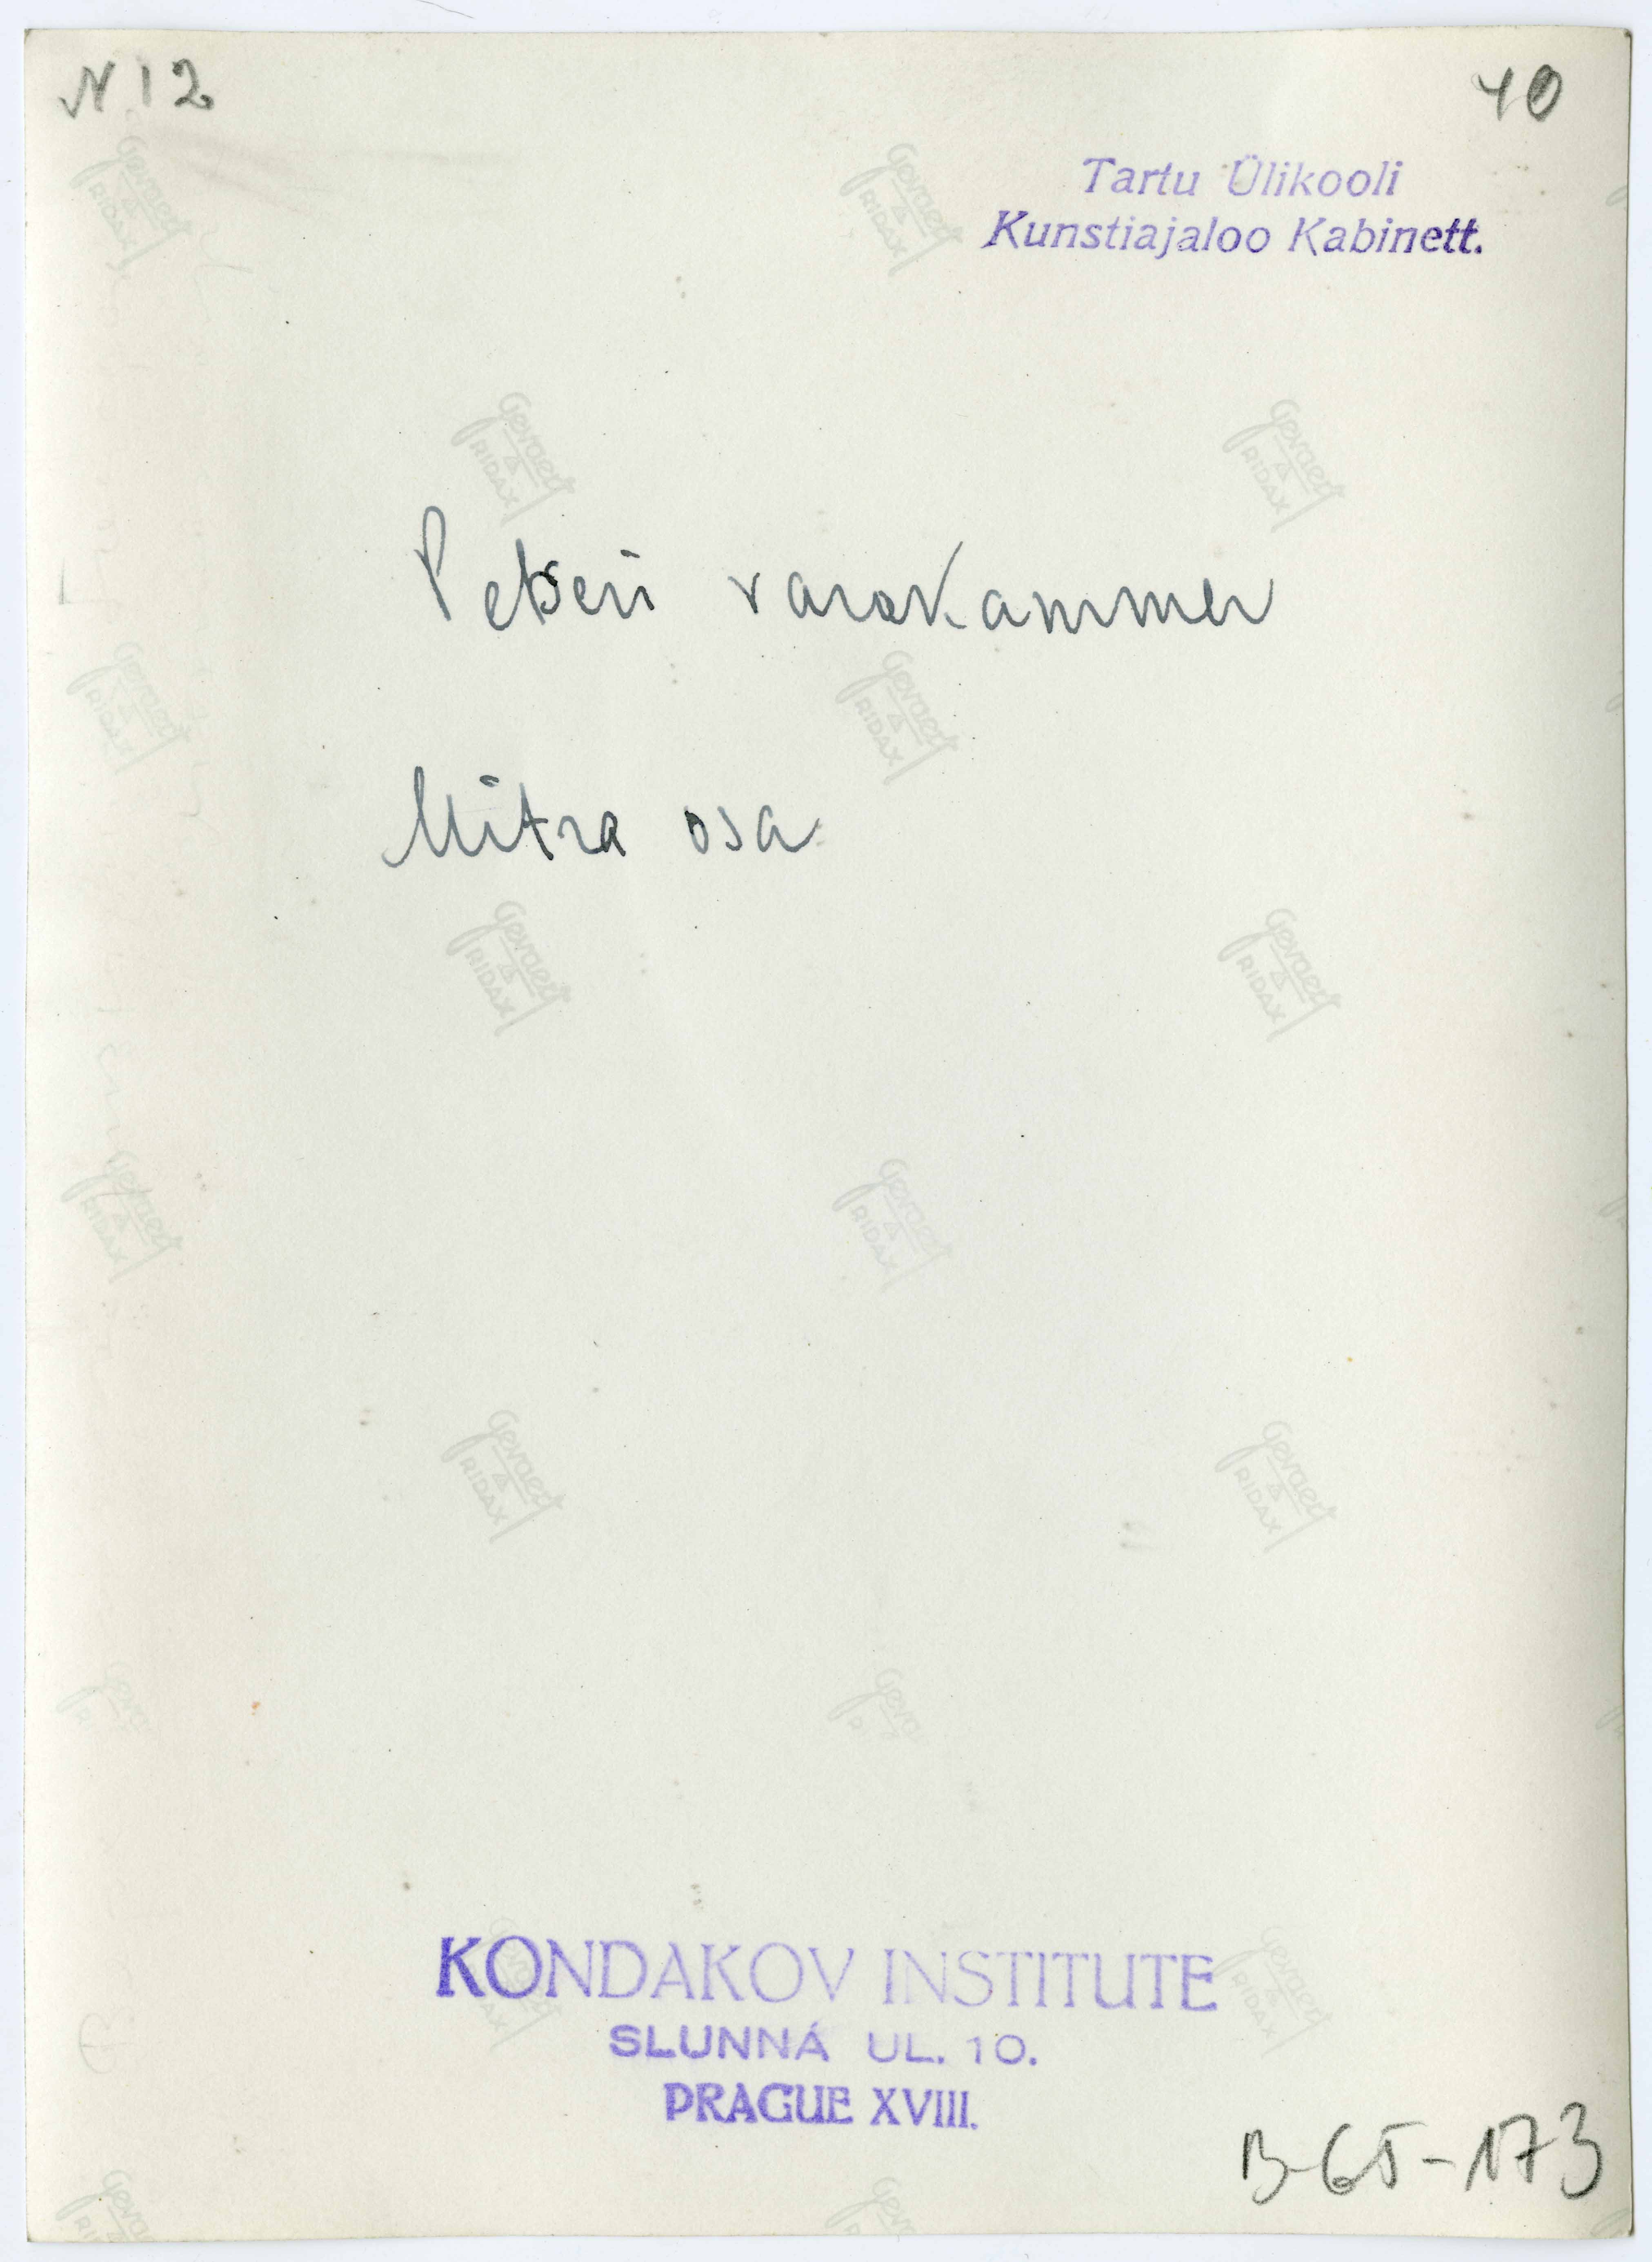 N 12
40
Tartu Ülikooli
Kunstiajaloo Kabinett.
Petseri varakammer
Mitra osa
Gevaert
RIDAX
KONDAKOV INSTITUTE
SLUNNÁ UL. 10.
PRAGUE XVIII.
B-65-173